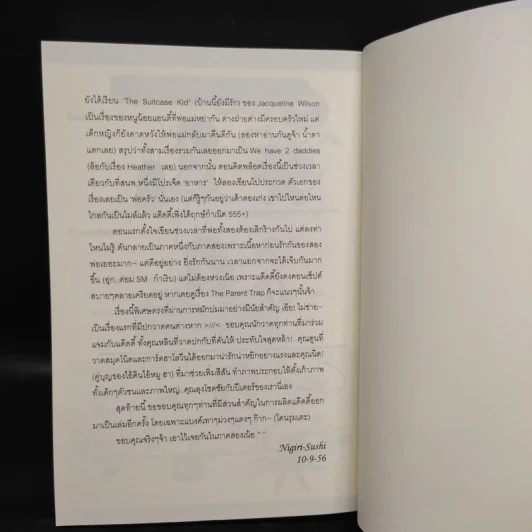 ยังได้เรียน 'The Suitcase Kid' (บ้านนี้ยังมีรัก) ของ Jacqueline Wilson
เป็นเรื่องของหนูน้อยแอนดี้ที่พ่อแม่หย่ากัน ต่างฝ่ายต่างมีครอบครัวใหม่ แต่
เด็กหญิงก็ยังคาดหวังให้พ่อแม่กลับมาคืนดีกัน (ลองหาอ่านกันดูจ้า น้ำตา
แตกเลย) สรุปว่าทั้งสามเรื่องรวมกันเลยออกมาเป็น We have 2 daddies
(ล้อกับเรื่อง Heather เลย) นอกจากนั้น ตอนคิดพล็อตเรื่องนี้เป็นช่วงเวลา
เดียวกับที่สนพ.หนึ่งมีโปรเจ็ค 'อาหาร' ให้ลองเขียนไปประกวด ตัวเอกของ
เรื่องเลยเป็น 'พ่อครัว' นั่นเอง (แต่ก็รู้ๆกันอยู่ว่าเค้าดองเก่ง เขาไปไหนต่อไหน
ไกลกันเป็นไมล์แล้ว แด๊ดดี้เพิ่งได้ฤกษ์กำเนิด 555+)
ตอนแรกตั้งใจเขียนช่วงเวลาที่พ่อทั้งสองต้องเลิกร้างกันไป แต่ลงท่า
ไหนไม่รู้ ดันกลายเป็นภาคหนึ่งกับภาคสองเพราะเนื้อหาก่อนรักกันของสอง
พ่อเยอะมาก-- แต่ดีอยู่อย่าง ยิ่งรักกันนาน เวลาแยกจากจะได้เจ็บกันมาก
ขึ้น (อุ่ก..ต่อม SM กำเริบ) แต่ไม่ต้องห่วงเน้อ เพราะแด๊ดดี้ยังคงคอนเซ็ปต์
สบายๆคลายเครียดอยู่ หากเคยดูเรื่อง The Parent Trap ก็จะแนวๆนั้นจ้า
เรื่องนี้พิเศษตรงที่ผ่านการหมักบ่มมาอย่างมีนัยสำคัญ เอ๊ย! ไม่ช่าย--
เป็นเรื่องแรกที่มีปกวาดคนต่างหาก >///< ขอบคุณนักวาดทุกท่านที่มาร่วม
แจมกับแด๊ดดี้ ทั้งคุณหลินที่วาดปกที่คั่นให้ ประทับใจสุดหล้า! คุณตูนที่
วาดสมุดโน๊ตและการ์ดฮาโลวีนได้ออกมาน่ารักน่าหยิกอย่างแรงและคุณนิด!
(คู่บุญของไอ้ดินไอ้หมู ฮา) ที่มาช่วยเพิ่มสีสัน ทำภาพประกอบให้ตั้งเก้าภาพ
ทั้งเด็กๆตัวชนและภาพใหญ่..คุณลุงโชคชัยกับปีเตอร์ของเรานี่เอง
สุดท้ายนี้ ขอขอบคุณทุกๆท่านที่มีส่วนสำคัญในการผลิตแด๊ดดี้ออก
มาเป็นเล่มอีกครั้ง โดยเฉพาะแบงค์เทาๆม่วงๆแดงๆ ก๊าก-- (โดนรุมเตะ)
ขอบคุณจริงๆจ้า เอาไว้เจอกันในภาคสองเน้อ ^ ^
Nigiri-Sushi
10-9-56